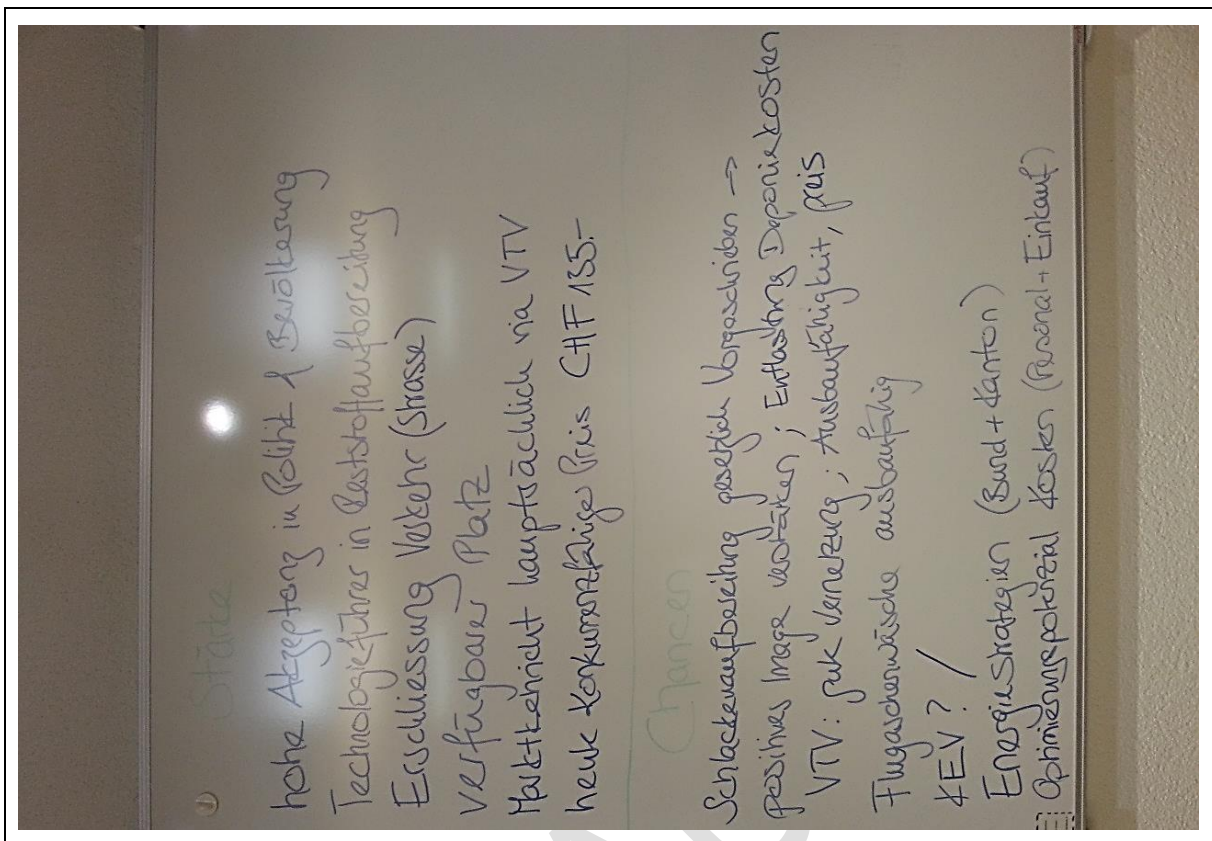 Stärke
hohe Akzeptanz in Politik & Bevölkerung
Technologieführer in Reststoffaufbereitung
Erschliessung Verkehr (Strasse)
Verfügbarer Platz
Marktkehricht hauptsächlich via VTV
heute konkurrenzfähiger Preis CHF 135.-
Chancen
Schlackenaufbereitung gesetzlich vorgeschrieben →
positives Image verstärken ; Entlastung Deponiekosten
VTV: gute Vernetzung ; Ausbaufähigkeit, preis
Flugaschenwäsche ausbaufähig
KEV? /
Energiestrategien (Bund + Kanton)
Optimierungspotenzial Kosten (Personal + Einkauf)